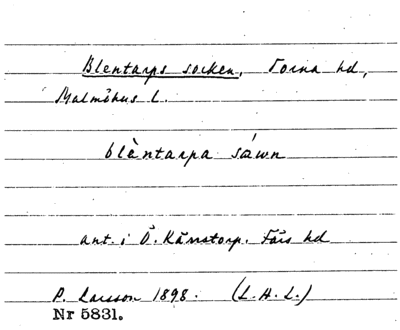 Blentarps socken, Torna hd,
Malmöhus l.
blèntarpa sáwn
ant. i Ö. Kärrstorp. Färs hd
P. Larsson 1898. (L.H.L.)
Nr 5831.